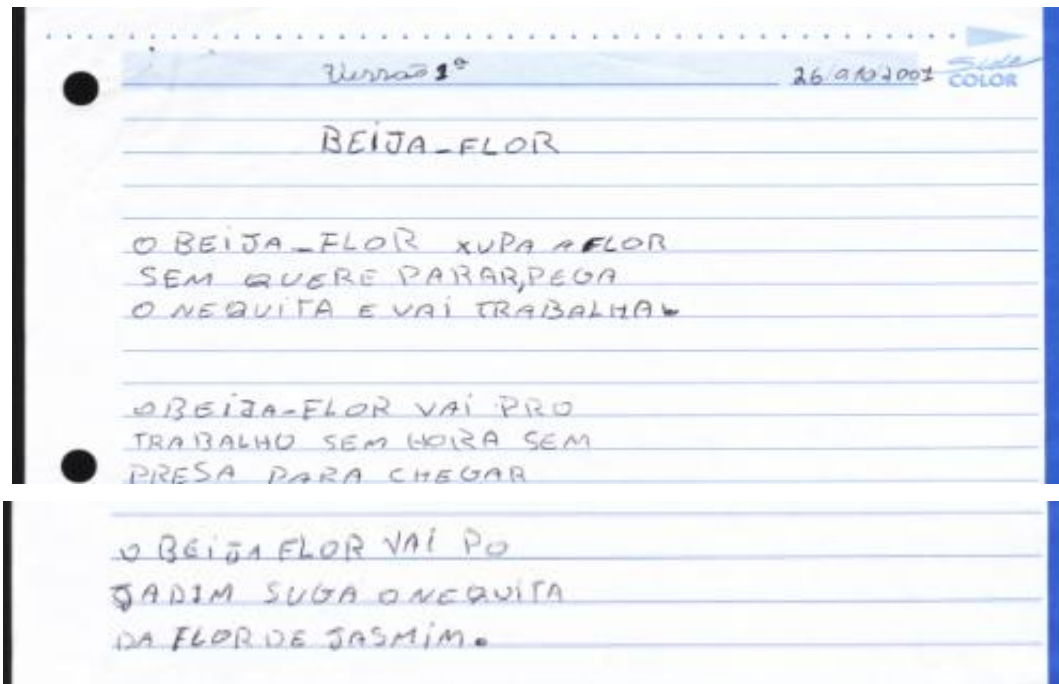 Versão 1ª
COLOR
BEIJA-FLOR
O BEIJA-FLOR XUPA A FLOR
SEM QUERE PARAR, PEGA
O NEQUITA E VAI TRABALHA.
O BEIJA-FLOR VAI PRO
TRABALHO SEM HORA SEM
PRESA PARA CHEGAR
O BEIJA FLOR VAI PO
JADIM SUGA O NEQUITA
DA FLOR DE JASMIM.